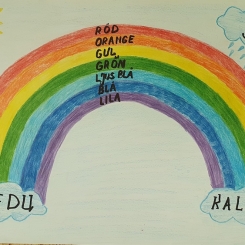 RÖD
ORANGE
GUL
GRÖN
LJUS BLÅ
BLÅ
LILA